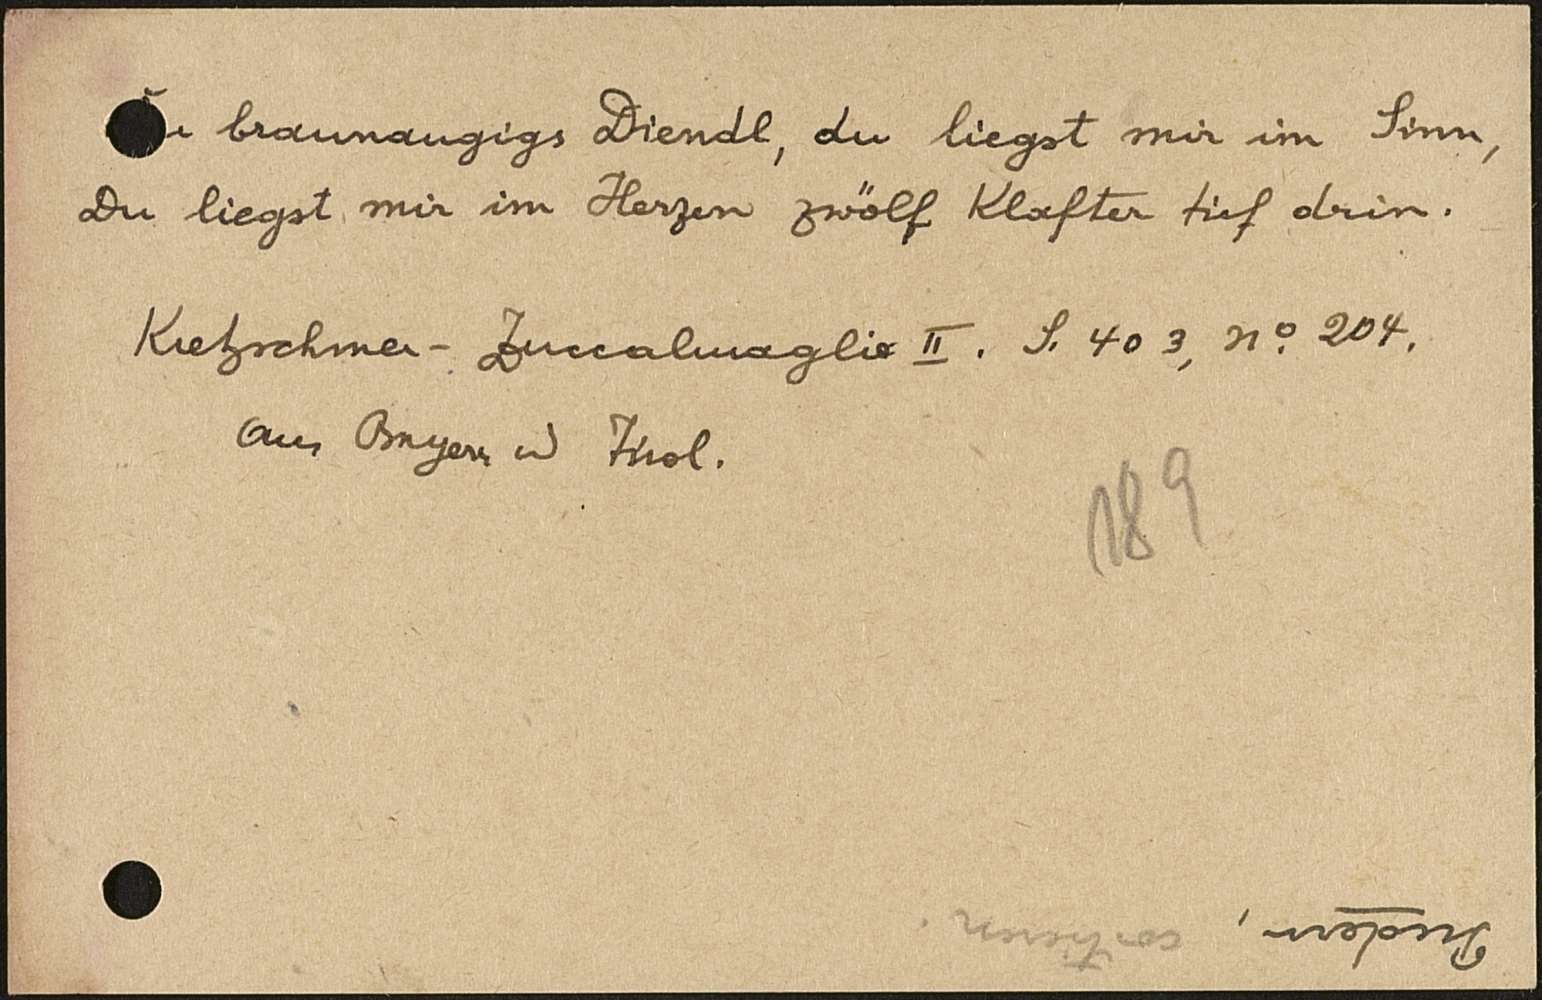 Du braunaugigs Diendl, du liegst mir im Sinn,
Du liegst mir im Herzen zwölf Klafter tief drin.
Kretzschmer - Zuccalmaglio II. S. 403, No. 204.
aus Bayern u Tirol.
189